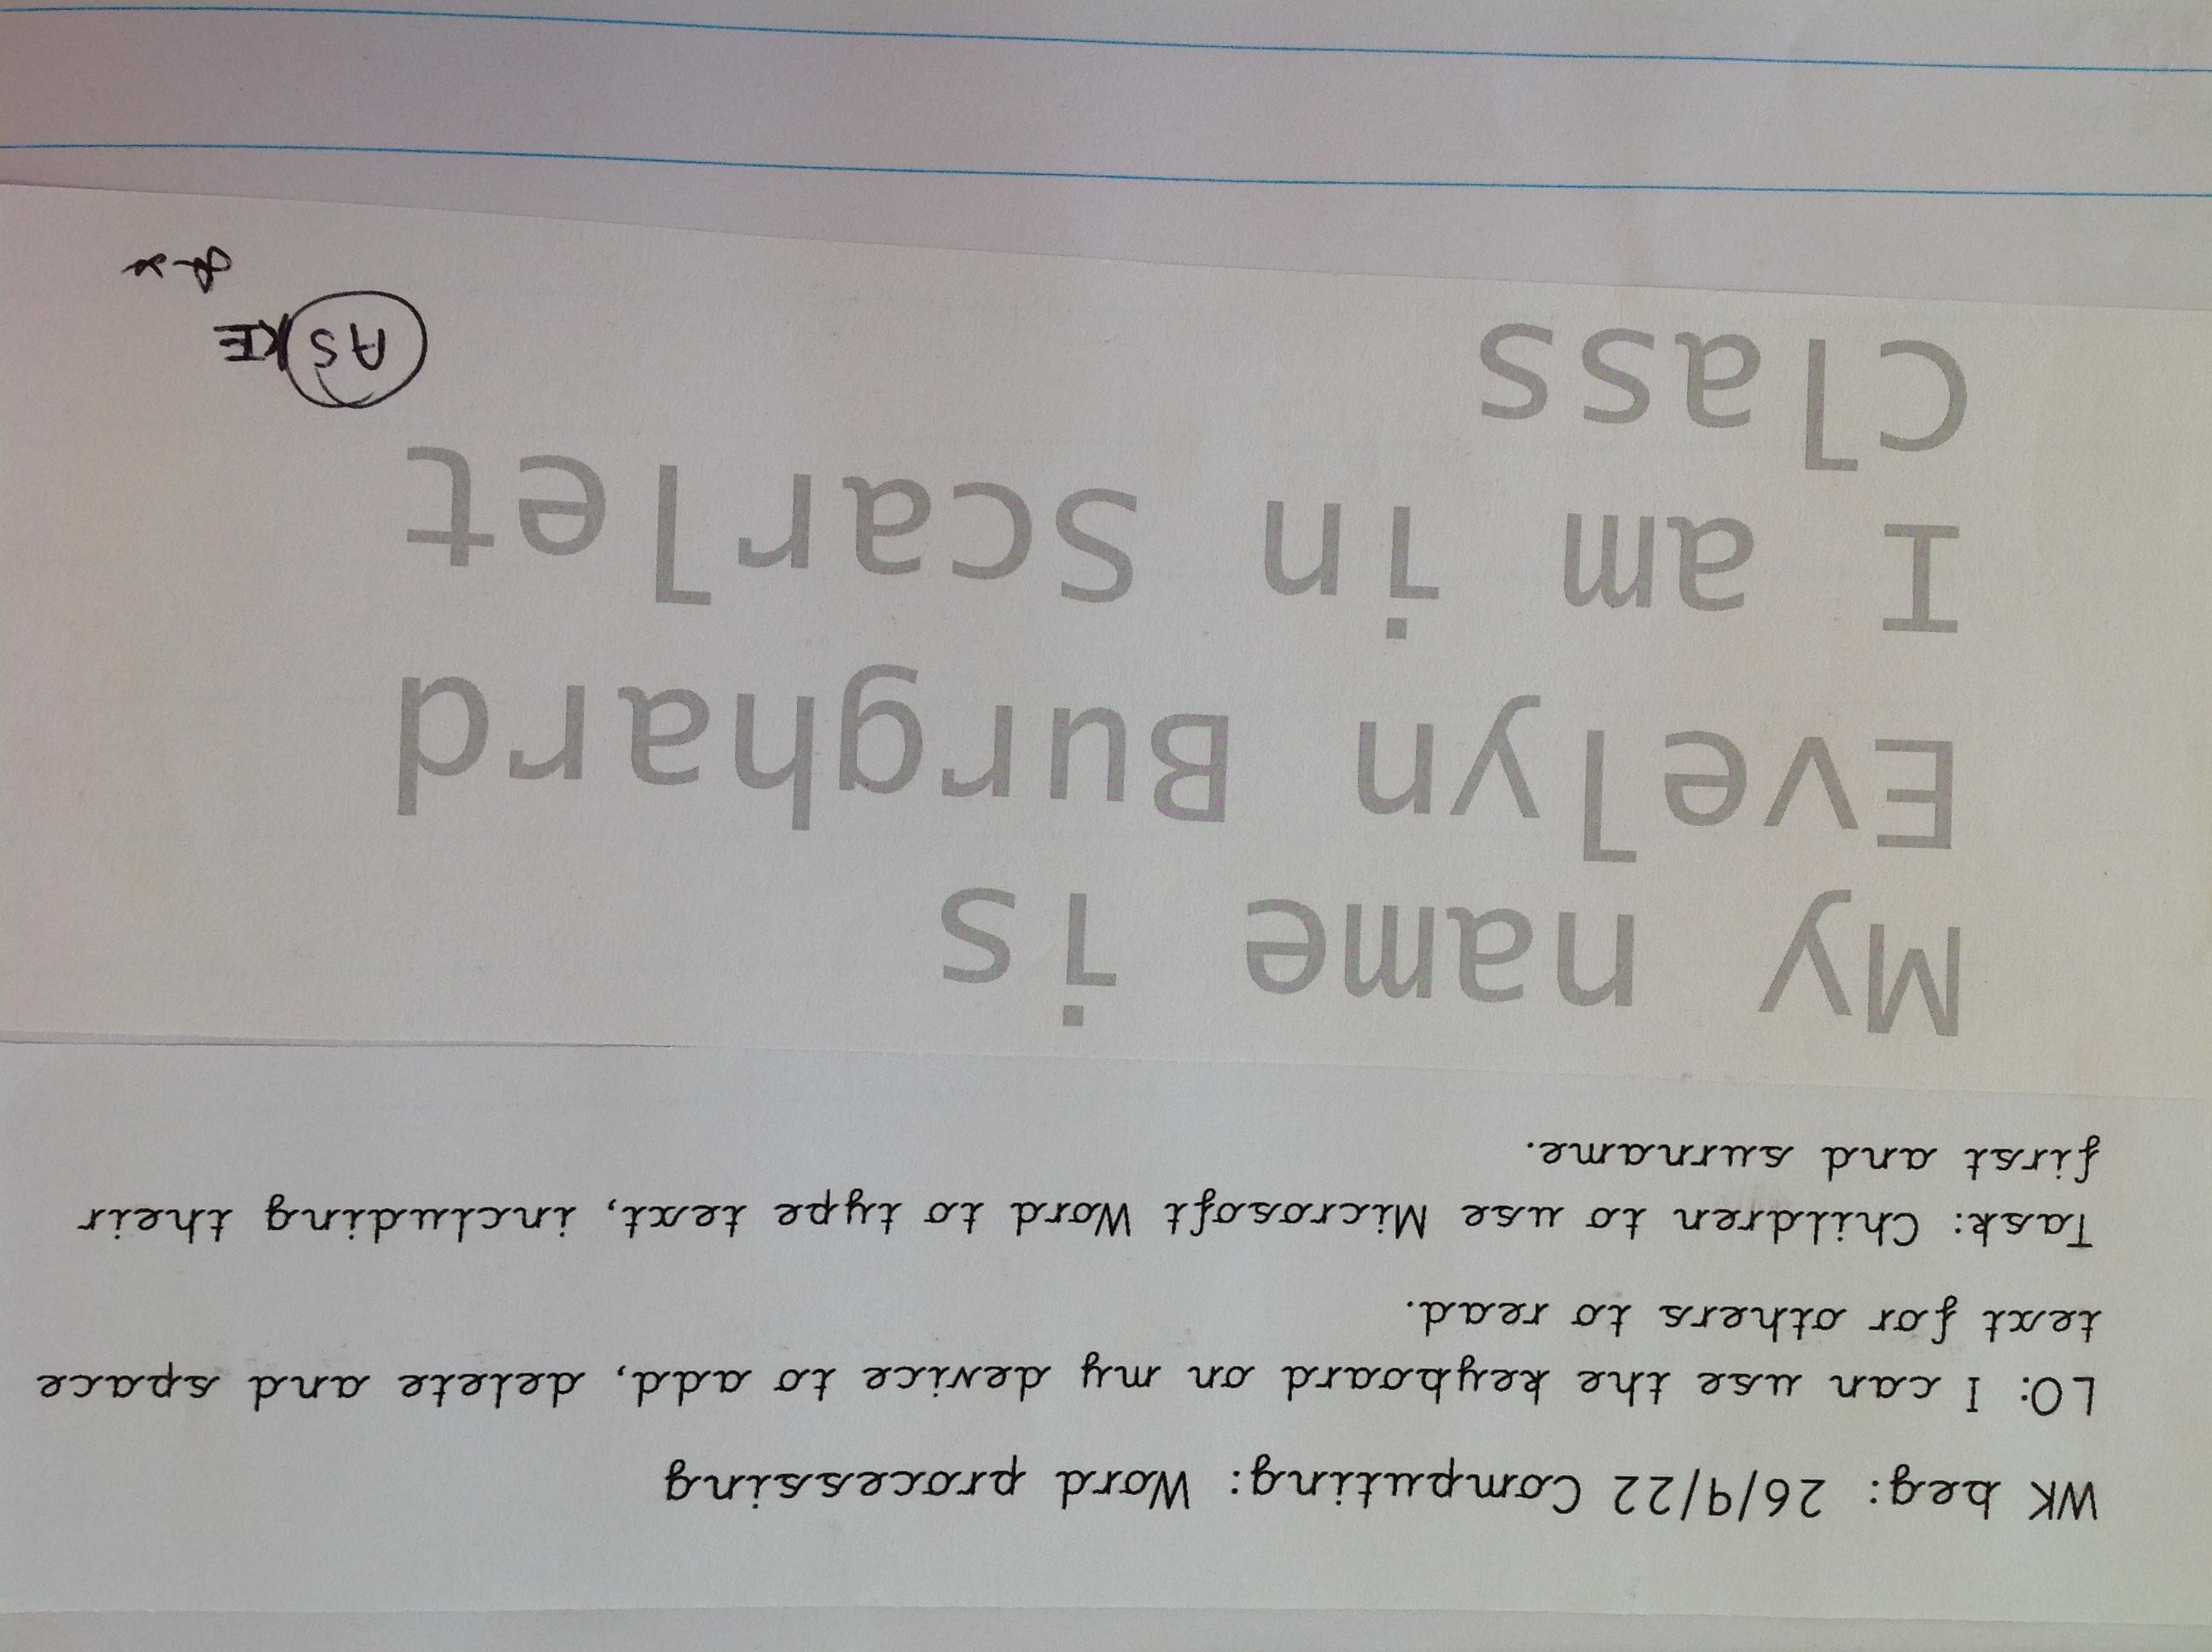 WK beg: 26/9/22 Computing: Word processing
LO: I can use the keyboard on my device to add, delete and space
text for others to read.
Task: Children to use Microsoft Word to type text, including their
first and surname.
My name is
Evelyn Burghard
I am in Scarlet
Class
AS KE